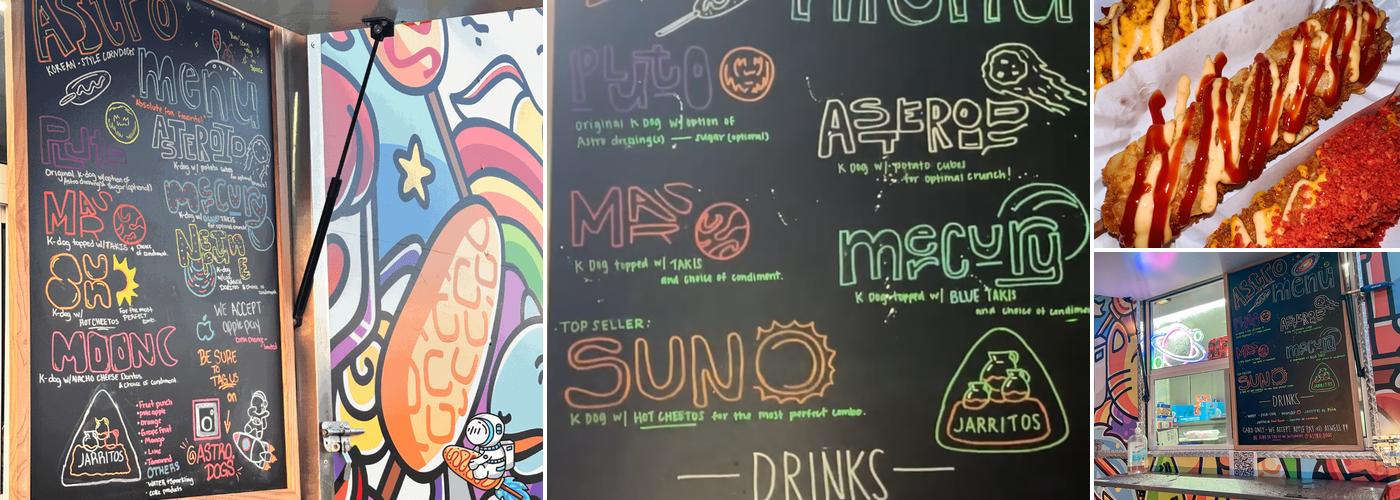 Astro
KOREAN-STYLE CORNDOGS
menu
Absolute fan favorite!
Pluto
Original K-dog w/option of
Astro dressing sugar (optional)
ASTEROID
K-dog w/ potato cubes
for optimal crunch
MARS
K-dog topped w/ TAKIS + choice
of condiment.
mercury
K-dog w/ BLUE TAKIS
SUN
K-dog w/
HOT CHEETOS
For the most
PERFECT
Neptune
K-dog
MOON
K-dog w/ NACHO CHEESE Doritos
& choice of condiment
WE ACCEPT
apple pay
BE SURE
TO
TAG US
on
ASTRO
DOGS
JARRITOS
• Fruit punch
• pineapple
• Orange
• Grapefruit
• Mango
• Lime
• Tamarind
OTHERS
• WATER • sparkling
• coke products
menu
Pluto
Original K Dog w/ option of
Astro dressing(s) — sugar (optional)
ASTEROID
K Dog w/ potato cubes
for optimal crunch!
MARS
K Dog topped w/ TAKIS
and choice of condiment.
mercury
K Dog topped w/ BLUE TAKIS
and choice of condiment
• TOP SELLER:
SUN
K Dog w/ HOT CHEETOS for the most perfect combo.
JARRITOS
— DRINKS —
Astro
menu
Pluto
ASTEROID
MARS
mercury
SUN
JARRITOS
— DRINKS —
CARD ONLY - WE ACCEPT APPLE PAY AS WELL